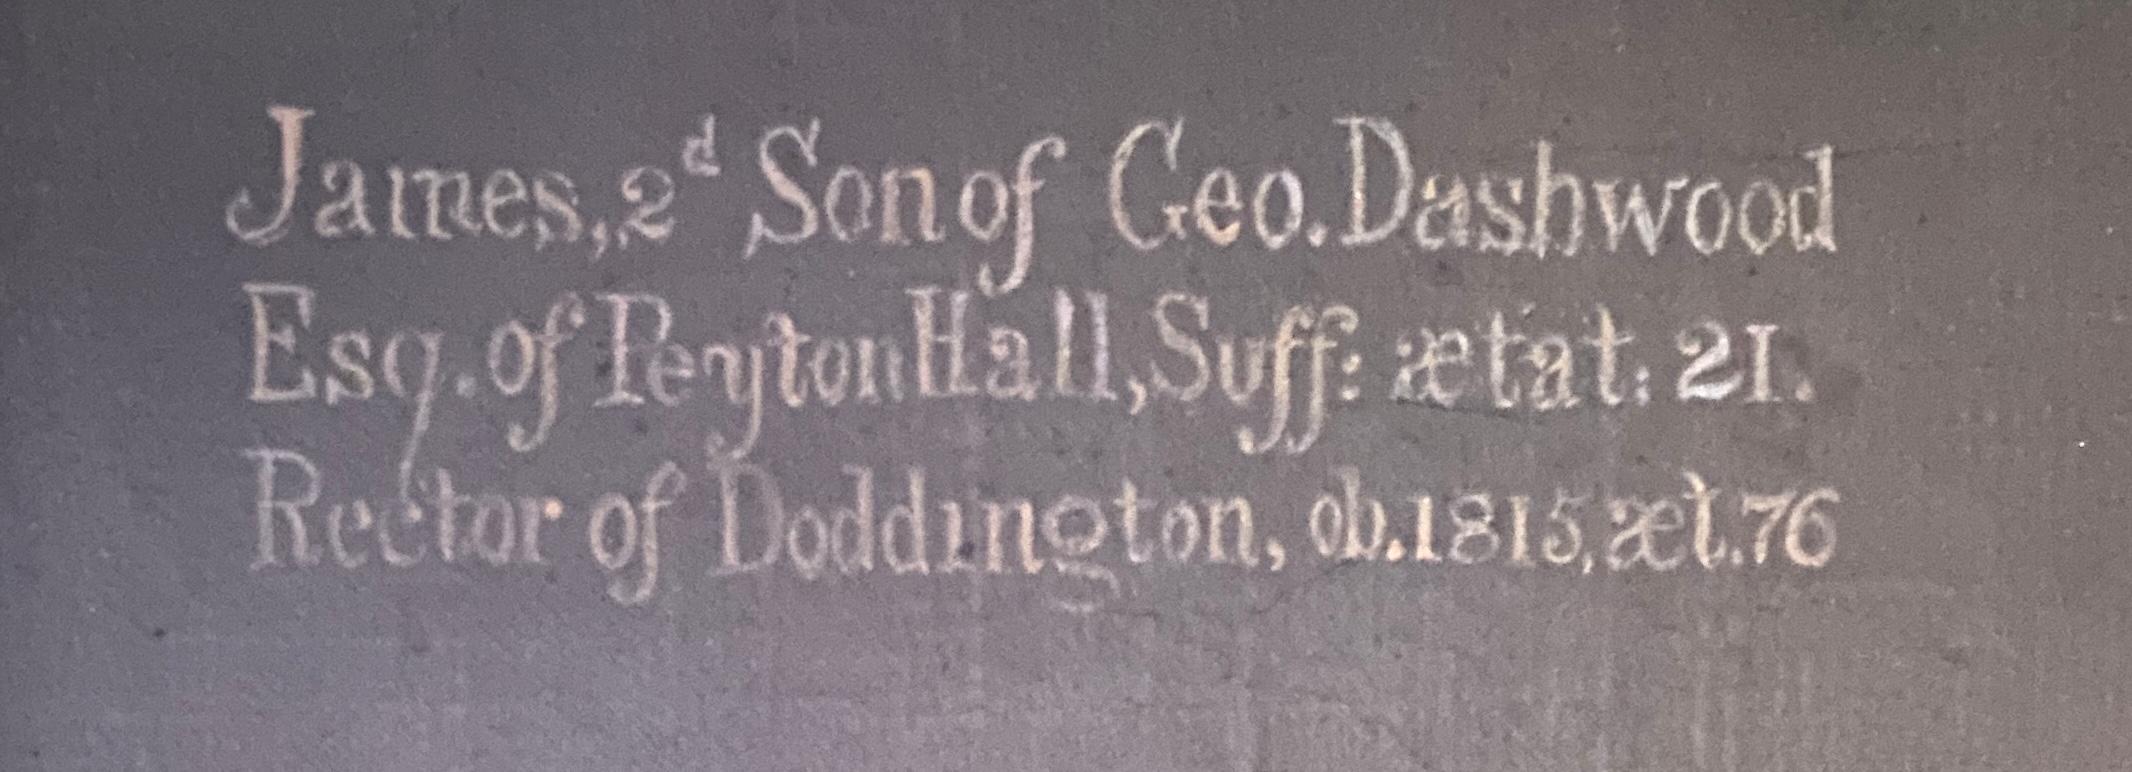 James, 2d Son of Geo. Dashwood
Esq. of Peyton Hall, Suff: ætat: 21.
Rector of Doddington, ob. 1815, æt. 76